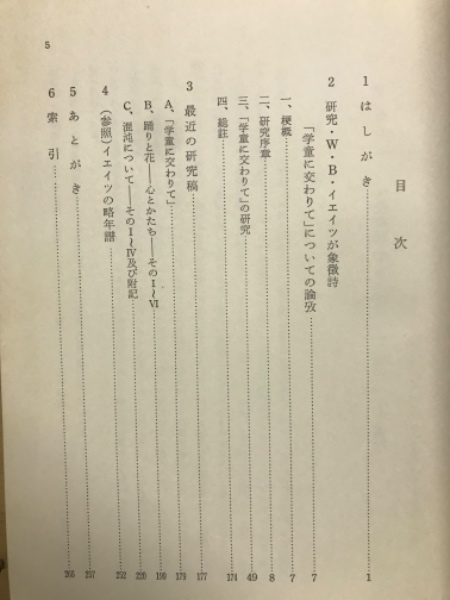 目次
1 はしがき 1
2 研究・W・B・イエイツが象徴詩
「学童に交わりて」についての論攷 7
一、梗概 7
二、研究序章 8
三、「学童に交わりて」の研究 49
四、総註 174
3 最近の研究稿 177
A、「学童に交わりて」 179
B、踊りと花——心とかたち——そのⅠ〜Ⅵ 190
C、混沌について——そのⅠ〜Ⅳ及び附記 220
4 (参照)イエイツの略年譜 252
5 あとがき 257
6 索引 265
5